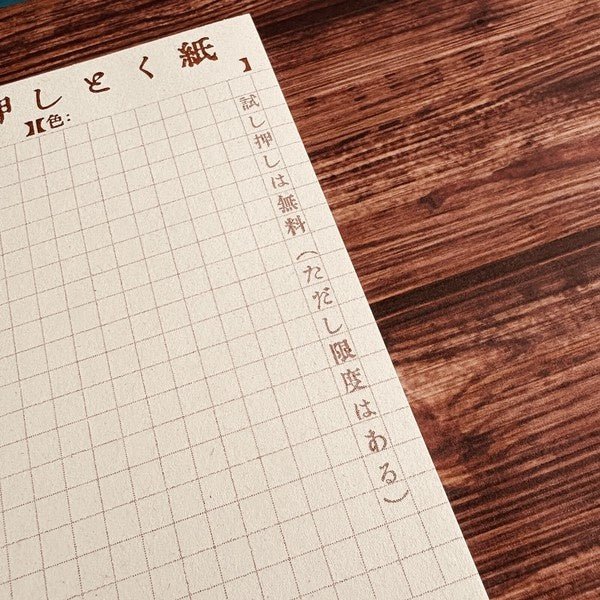 押しとく紙
】【色: 】
試し押しは無料（ただし限度はある）